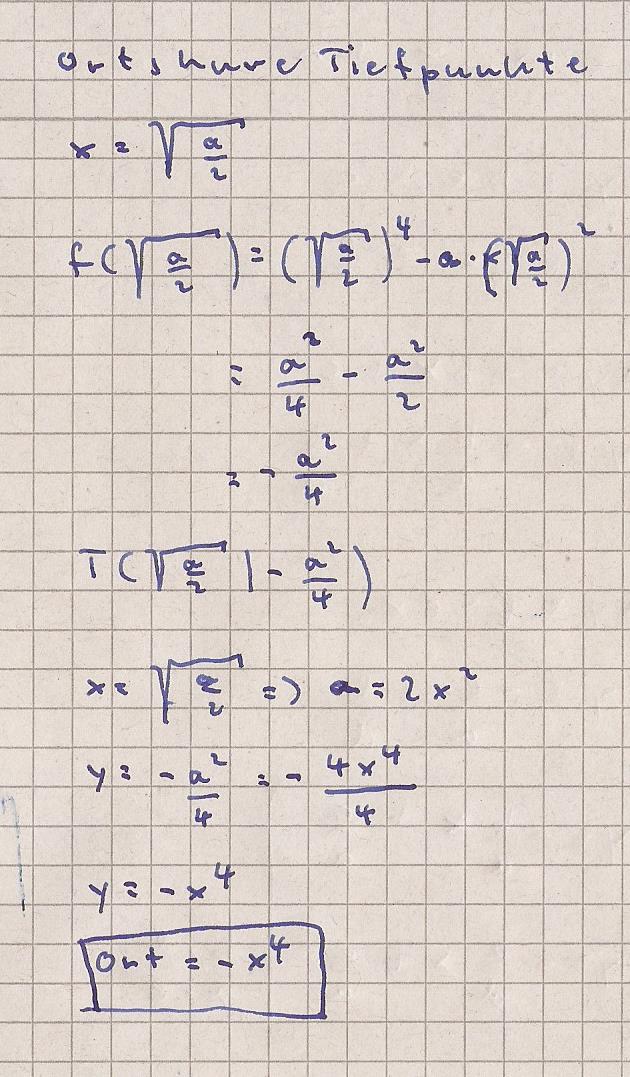 Ortskurve Tiefpunkte
x = √(a/2)
f(√(a/2)) = (√(a/2))^4 - a · (√(a/2))^2
= a^2/4 - a^2/2
= - a^2/4
T(√(a/2) | - a^2/4)
x = √(a/2) => a = 2x^2
y = - a^2/4 = - 4x^4/4
y = - x^4
Ort = - x^4